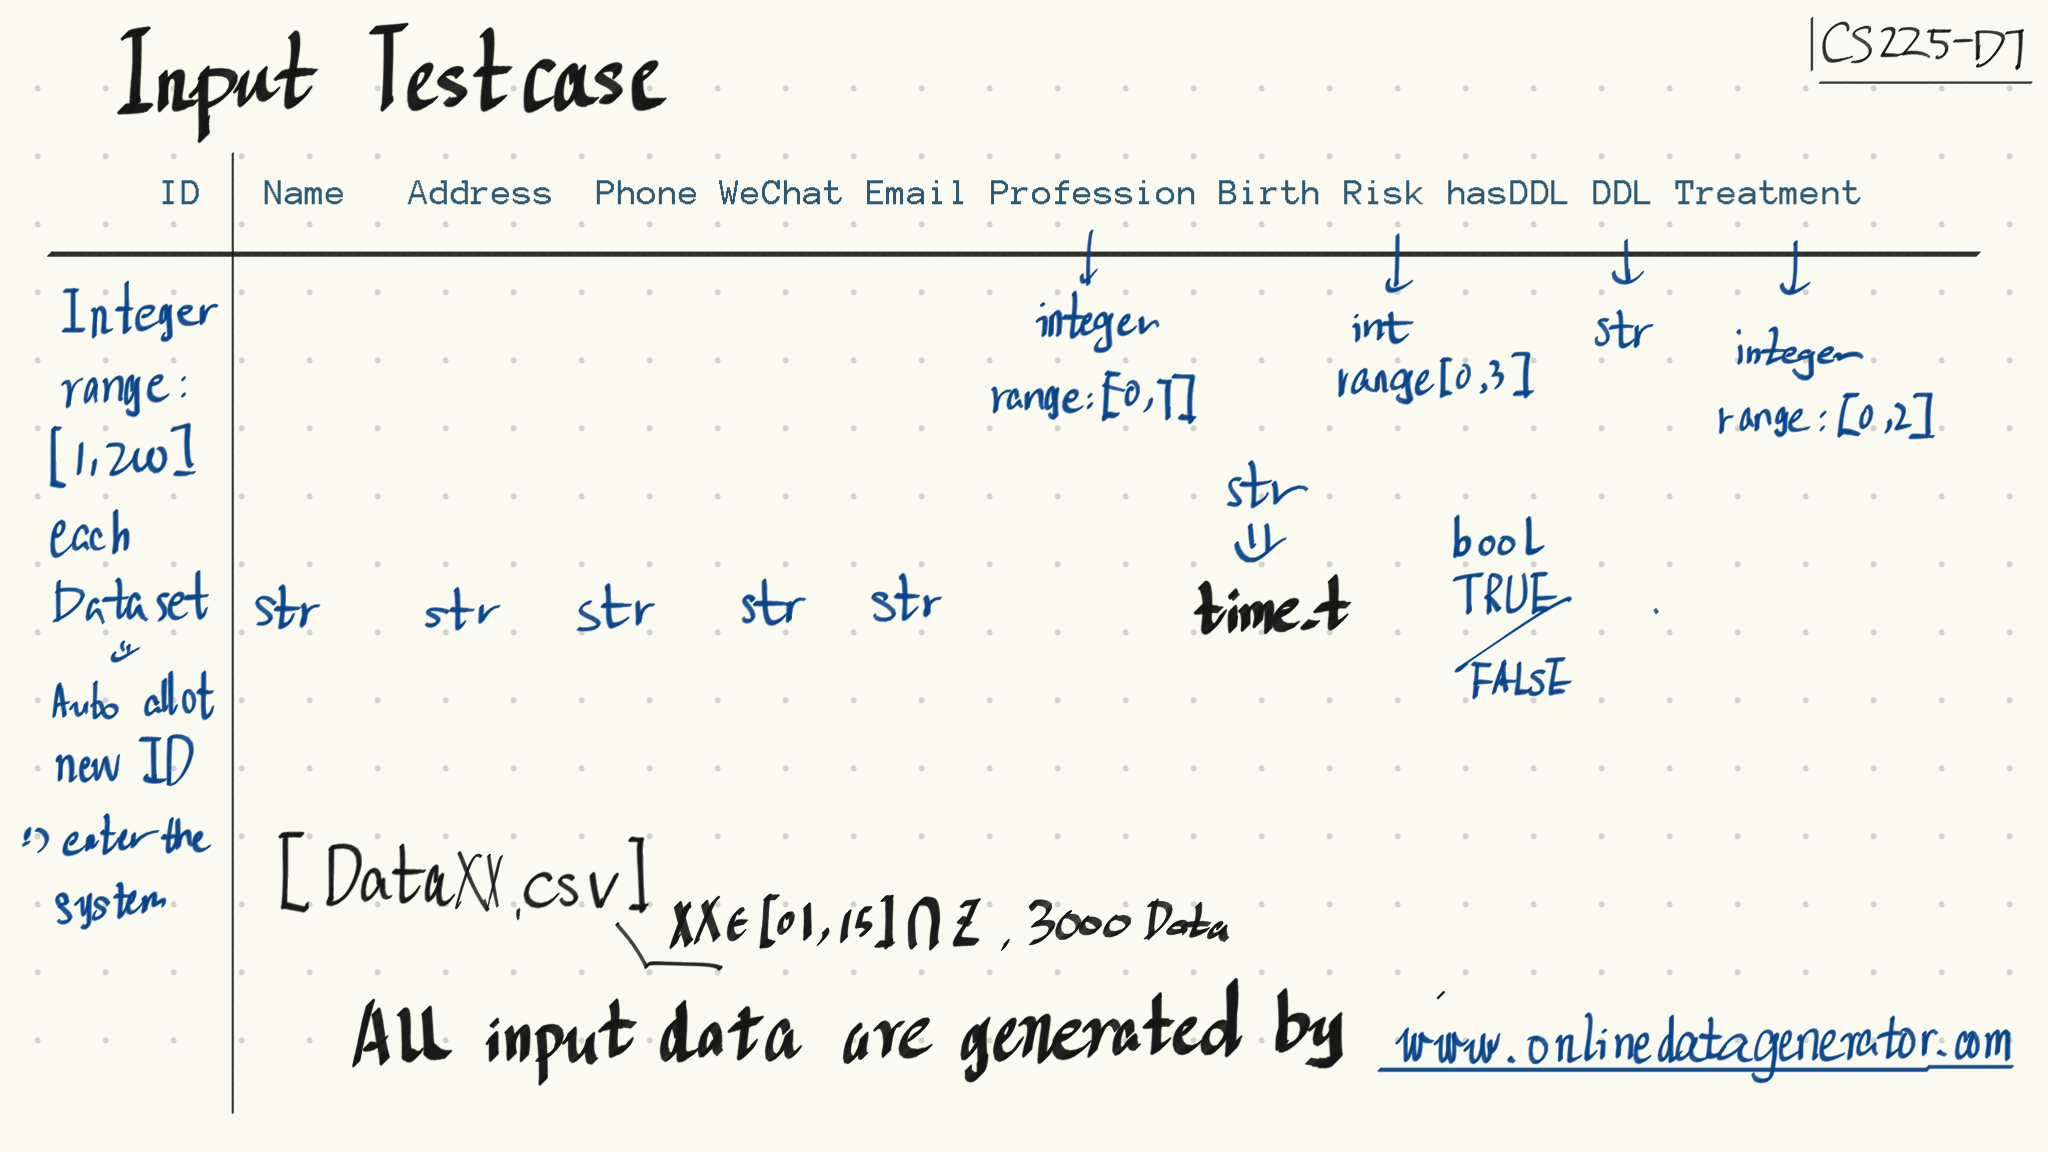 Input Testcase
CS225-D1
ID Name Address Phone WeChat Email Profession Birth Risk hasDDL DDL Treatment
Integer
range:
[1,200]
each
Dataset
Auto allot
new ID
enter the
system
str
str
str
str
str
integer
range:[0,7]
str
time_t
int
range[0,3]
bool
TRUE
/
FALSE
str
integer
range:[0,2]
[DataXX.csv]
XX∈[01,15]∩Z, 3000 Data
All input data are generated by www.onlinedatagenerator.com